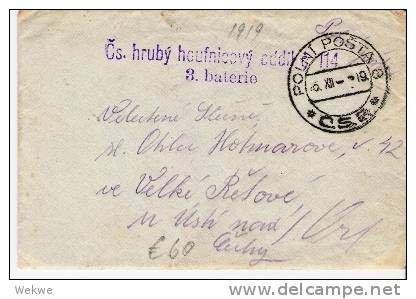 1919
Čs. hrubý houfnicový oddíl 114
3. baterie
POLNÍ POŠTA 8
5. XII – 19
* Č.S.P. *
Velectěné slečně
sl. Otilii Hotmarove, č. 42
ve Velké Řetové,
u Ústí nad / Orl
Čechy
£60
Wekwe
www.delcampe.net